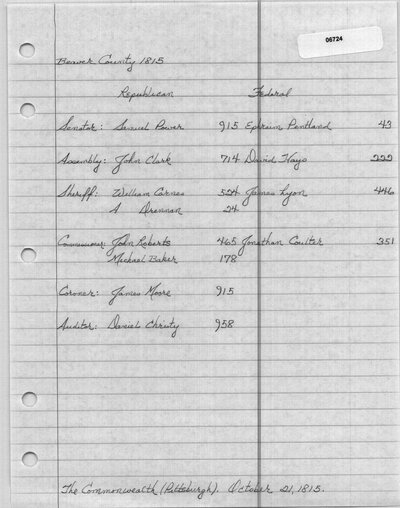 06724
Beaver County 1815
Republican Federal
Senator: Samuel Power 915 Ephraim Pentland 43
Assembly: John Clark 714 David Hays 222
Sheriff: William Carnes 524 James Lyon 446
A Drennan 24
Commissioner: John Roberts 465 Jonathan Coulter 351
Michael Baker 178
Coroner: James Moore 915
Auditor: Daniel Christy 958
The Commonwealth (Pittsburgh). October 21, 1815.